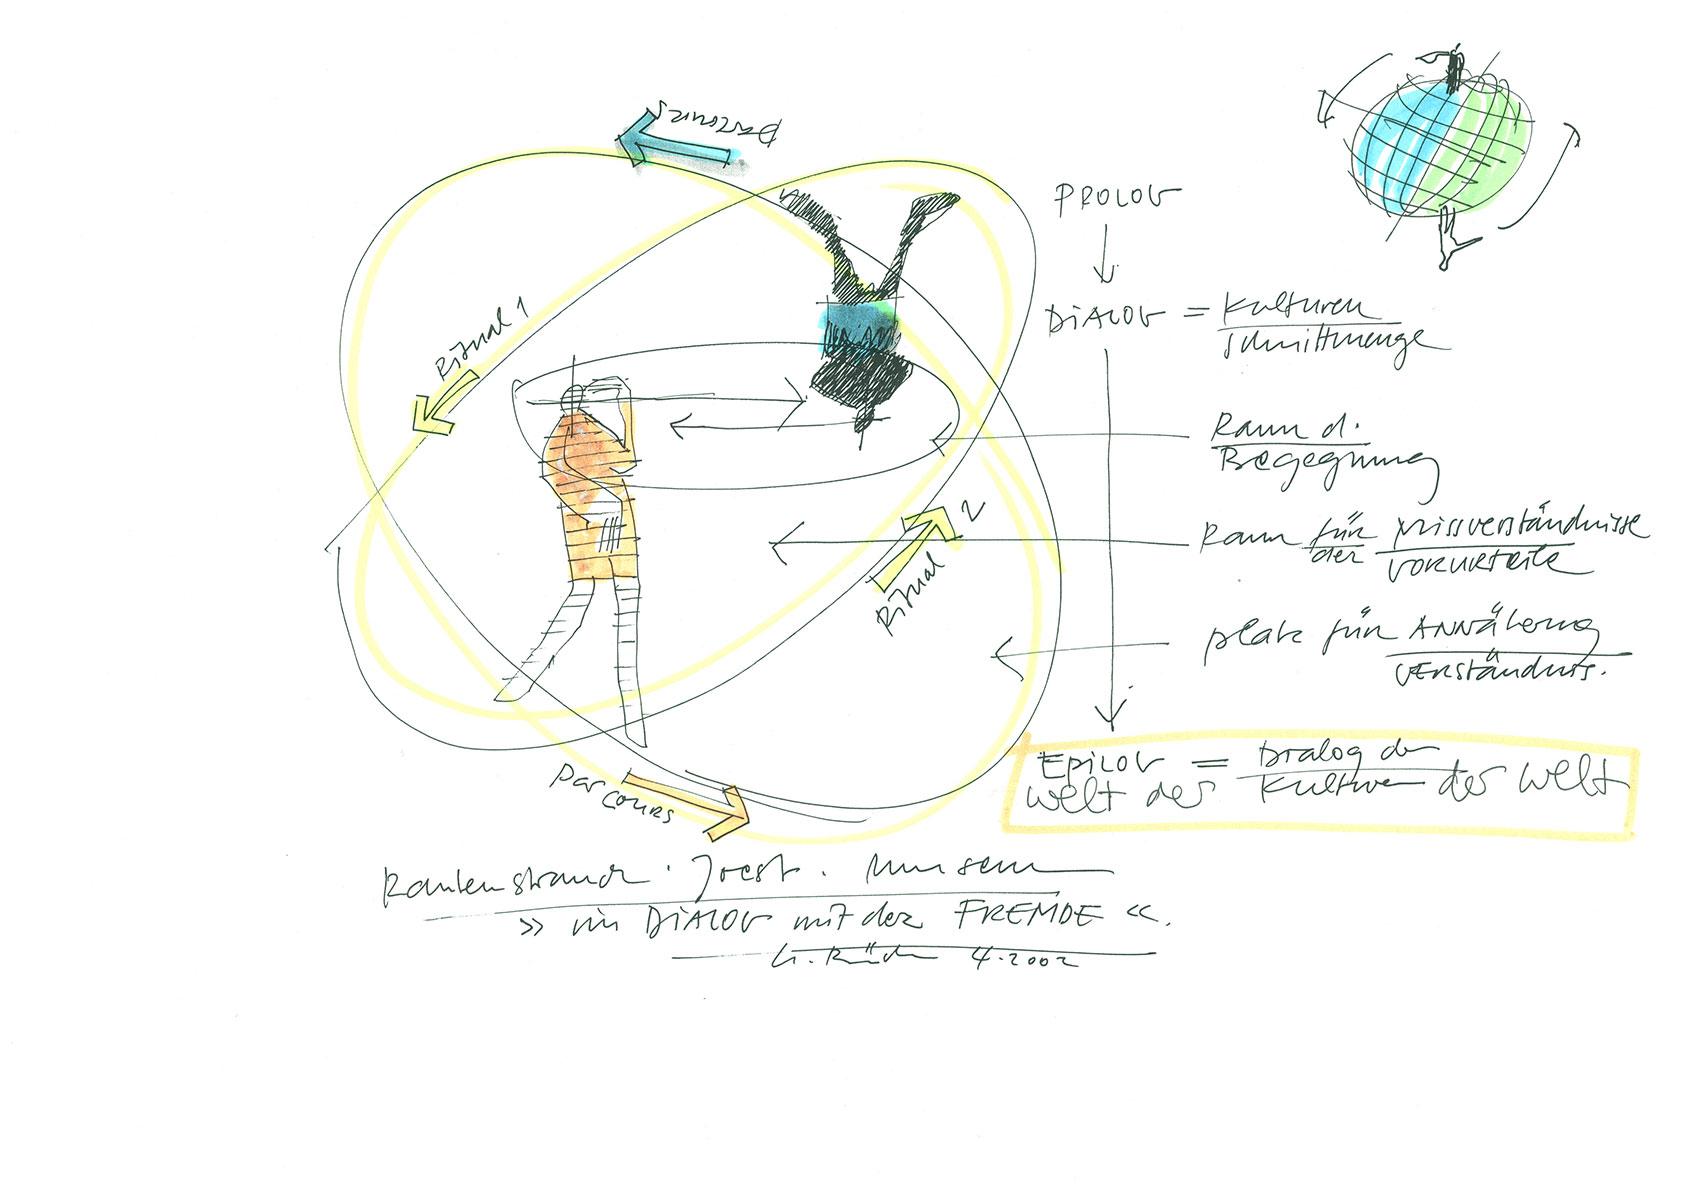 Parcours
PROLOG
Ritual 1
DiALOG = Kulturen
Schnittmenge
Raum d.
Begegnung
Ritual 2
Raum für Missverständnisse
der VORURTEILE
platz für ANNÄHERUNG
VERSTÄNDNIS.
EPILOG = Dialog der
Welt der Kulturen der Welt
Parcours
Rautenstrauch · Joest · Museum
» im DiALOG mit der FREMDE «.
4.2002